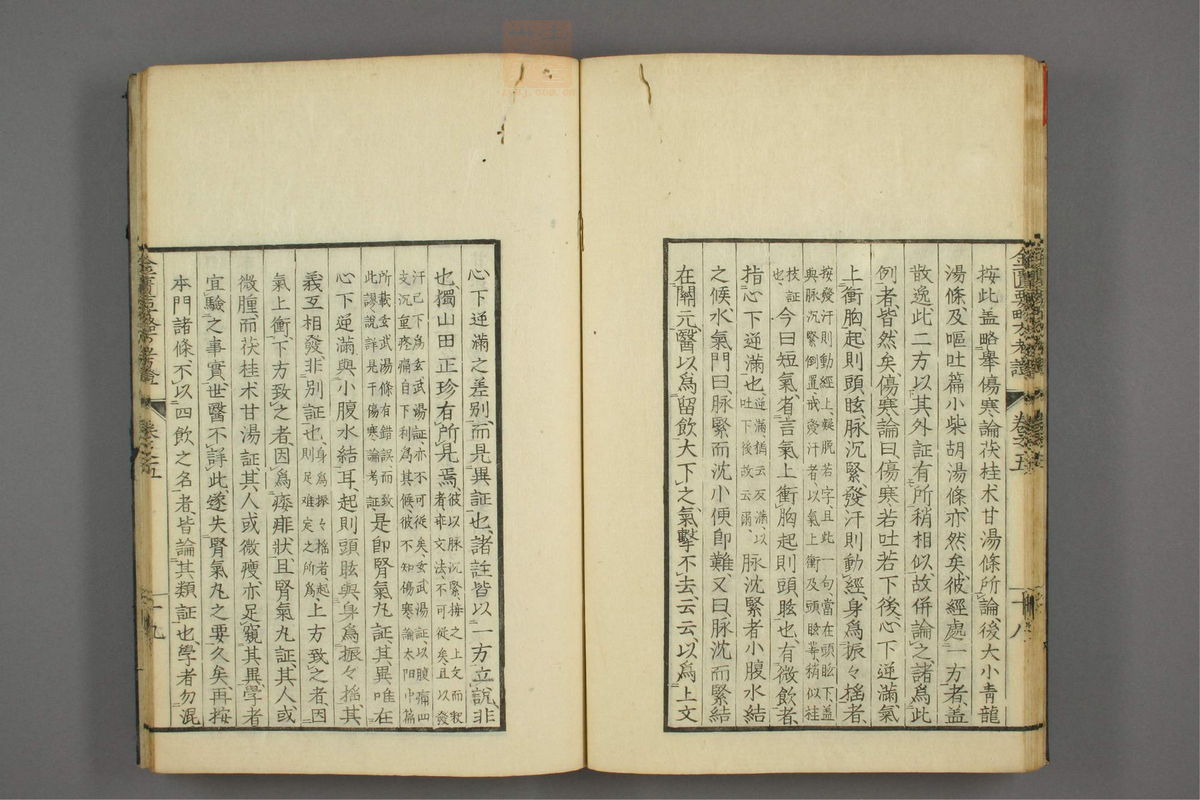 按此盖略舉傷寒論茯桂术甘湯條所論、後大小青龍
湯條、及嘔吐篇小柴胡湯條、亦然矣、彼經處一方者、盖
散逸此二方、以其外証有所稍相似、故併論之、諸爲此
例者、皆然矣、傷寒論曰、傷寒、若吐若下後、心下逆滿、氣
上衝胸、起則頭眩、脉沉緊、發汗則動經、身爲振々搖者、
按發汗則動經上、疑脱若字、且此一句、當在頭眩下、盖
與脉沉緊倒置、戒發汗者、以氣上衝及頭眩等、稍似桂
枝証
也、
今曰短氣者、言氣上衝胸、起則頭眩也、有微飲者、
指心下逆滿也、
逆滿猶云支滿、以
吐下後故云爾、
脉沈緊者、小腹水結
之候、水氣門曰、脉緊而沈、小便即難、又曰、脉沈而緊、結
在關元、醫以爲留飲大下之、氣擊不去、云云、以爲上文
十八
心下逆滿之差別、而見異証也、諸註皆以一方立說、非
也、獨山田正珍有所見焉、
彼以脉沉緊、接之上文而釈
者、非文法、不可從矣、且以發
汗已下爲玄武湯証、亦不可從矣、玄武湯証、以腹痛四
支沉重疼痛自下利爲其候、彼不知傷寒論太陽中篇
所載玄武湯條有錯誤而致
此謬、說詳見于傷寒論考証、
是即腎氣丸証、其異唯在
心下逆滿與小腹水結耳、起則頭眩、與身爲振々搖、其
義互相發、非別証也、
身爲振々搖者、起
則足難定之所爲、
上方致之者、因
氣上衝、下方致之者、因爲痿痱狀、且腎氣丸証、其人或
微腫、而茯桂术甘湯証、其人或微瘦、亦足窺其異、學者
宜驗之事實、世醫不詳此、遂失腎氣丸之要久矣、再按
本門諸條、不以四飲之名者、皆論其類証也、學者勿混
十九